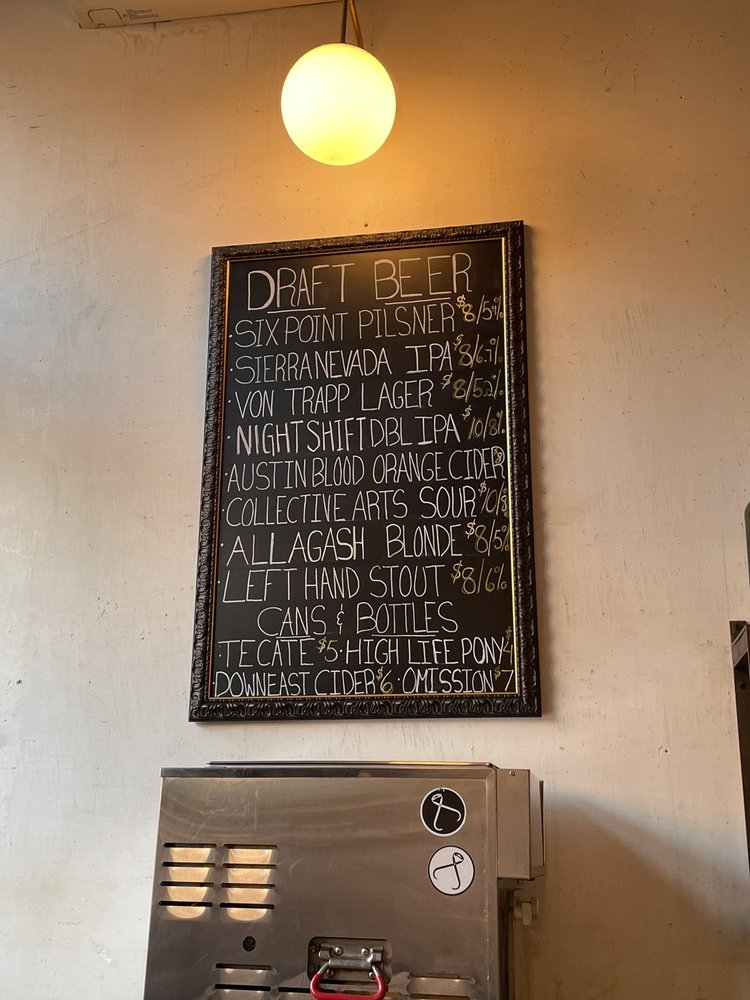 DRAFT BEER
· SIX POINT PILSNER $8/5%
· SIERRA NEVADA IPA $8/6.7%
· VON TRAPP LAGER $8/5.2%
· NIGHT SHIFT DBL IPA $10/8%
· AUSTIN BLOOD ORANGE CIDER
· COLLECTIVE ARTS SOUR $10/5
· ALLAGASH BLONDE $8/5%
· LEFT HAND STOUT $8/6%
CANS & BOTTLES
· TECATE $5 · HIGH LIFE PONY $4
DOWNEAST CIDER $6 · OMISSION $7